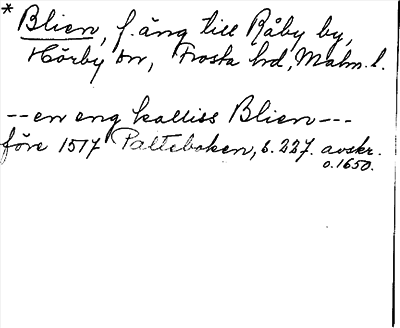 * Blien, f. äng till Råby by,
Hörby sn, Frosta hd, Malm. l.
--en eng kalliss Blien---
före 1517 Palteboken, s. 227. avskr.
o. 1650.